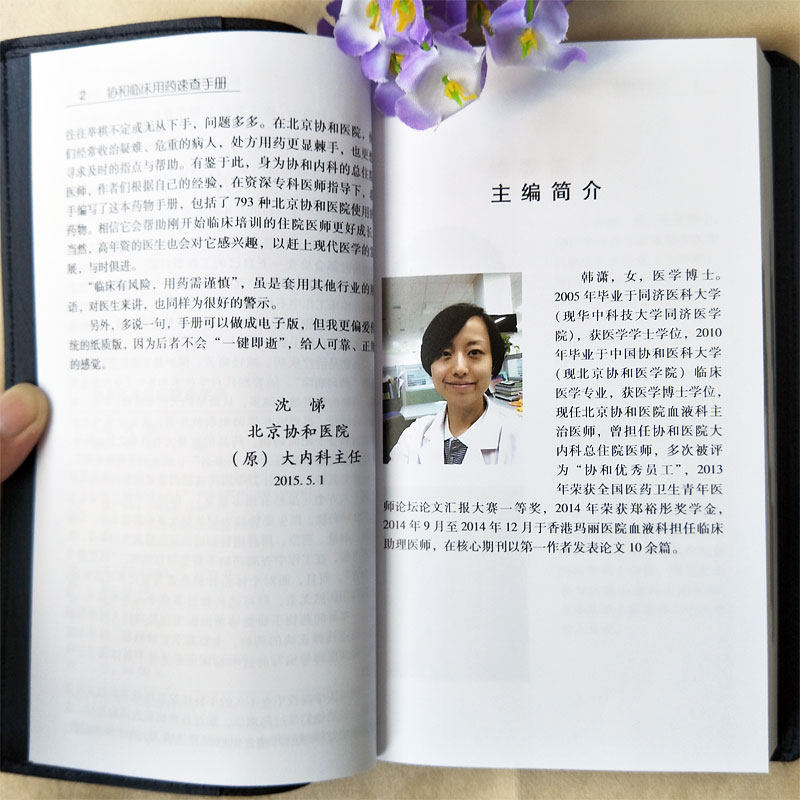 2 协和临床用药速查手册
往往举棋不定或无从下手，问题多多。在北京协和医院，
们经常收治疑难、危重的病人，处方用药更显棘手，也更
寻求及时的指点与帮助。有鉴于此，身为协和内科的总住
医师，作者们根据自己的经验，在资深专科医师指导下，
手编写了这本药物手册，包括了 793 种北京协和医院使用
药物。相信它会帮助刚开始临床培训的住院医师更好成长
当然，高年资的医生也会对它感兴趣，以赶上现代医学的
展，与时俱进。
“临床有风险，用药需谨慎”，虽是套用其他行业的
语，对医生来讲，也同样为很好的警示。
另外，多说一句，手册可以做成电子版，但我更偏爱
统的纸质版，因为后者不会“一键即逝”，给人可靠、正
的感觉。
沈 悌
北京协和医院
（原）大内科主任
2015.5.1
主编简介
韩潇，女，医学博士。
2005 年毕业于同济医科大学
（现华中科技大学同济医学
院），获医学学士学位，2010
年毕业于中国协和医科大学
（现北京协和医学院）临床
医学专业，获医学博士学位，
现任北京协和医院血液科主
治医师，曾担任协和医院大
内科总住院医师，多次被评
为“协和优秀员工”，2013
年荣获全国医药卫生青年医
师论坛论文汇报大赛一等奖，2014 年荣获郑裕彤奖学金，
2014 年 9 月至 2014 年 12 月于香港玛丽医院血液科担任临床
助理医师，在核心期刊以第一作者发表论文 10 余篇。